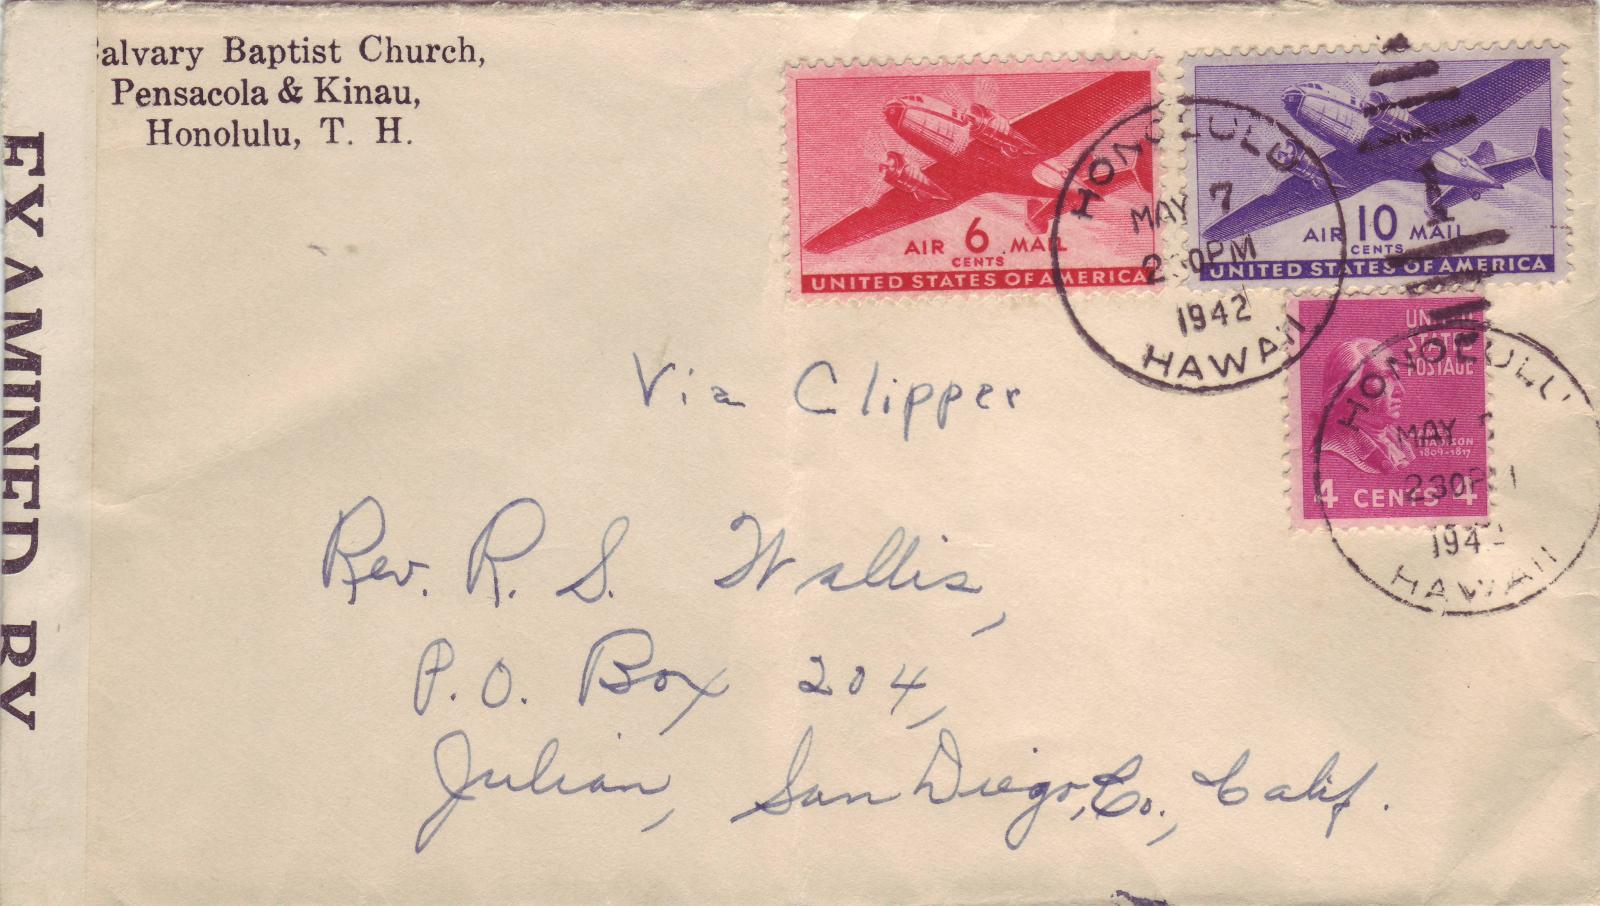 alvary Baptist Church,
Pensacola & Kinau,
Honolulu, T. H.
EXAMINED BY
AIR 6 MAIL
CENTS
UNITED STATES OF AMERICA
AIR 10 MAIL
CENTS
UNITED STATES OF AMERICA
HONOLULU
MAY 7
230PM
1942
HAWAII
1
UNITED
STATES
POSTAGE
JAMES
MADISON
1809-1817
4 CENTS 4
HONOLULU
MAY
230PM
194
HAWAII
Via Clipper
Rev. R. S. Wallis,
P.O. Box 204,
Julian, San Diego, Co., Calif.